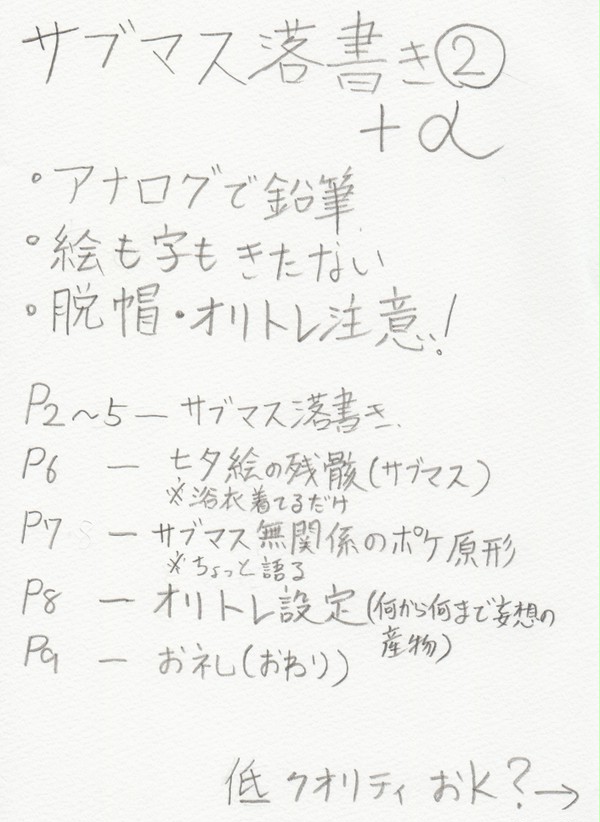 サブマス落書き②
+α
・アナログで鉛筆
・絵も字もきたない
・脱帽・オリトレ注意!
P2~5 ― サブマス落書き
P6 ― 七夕絵の残骸(サブマス)
※浴衣着てるだけ
P7 ― サブマス無関係のポケ原形
※ちょっと語る
P8 ― オリトレ設定(何から何まで妄想の
産物)
P9 ― お礼(おわり)
低クオリティおk?→